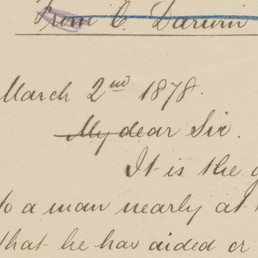 From C. Darwin
March 2nd 1878.
My dear Sir.
It is the g
to a man nearly at
that he has aided or